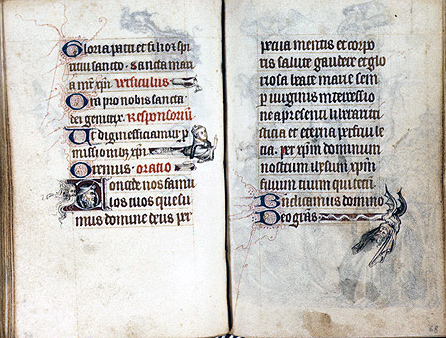 Gloria patri et filio et spi
ritui sancto. Sancta mari
a mr̄ xp̄i. Versiculus
Ora pro nobis sancta
dei genitrix. Responsoriū
Ut digni efficiamur p
missionib; xp̄i.
Oremus. oratio
Concede nos famu
los tuos quesu
mus domine deus per
petua mentis et corpo
ris salute gaudere et glo
riosa beate marie sem
p uirginis intercessio
ne a presenti liberari tri
sticia et eterna perfrui le
ticia. per xp̄m dominum
nostrum ihesum xp̄m
filium tuum qui tecū.
Benedicamus domino
Deo gr̄as
68